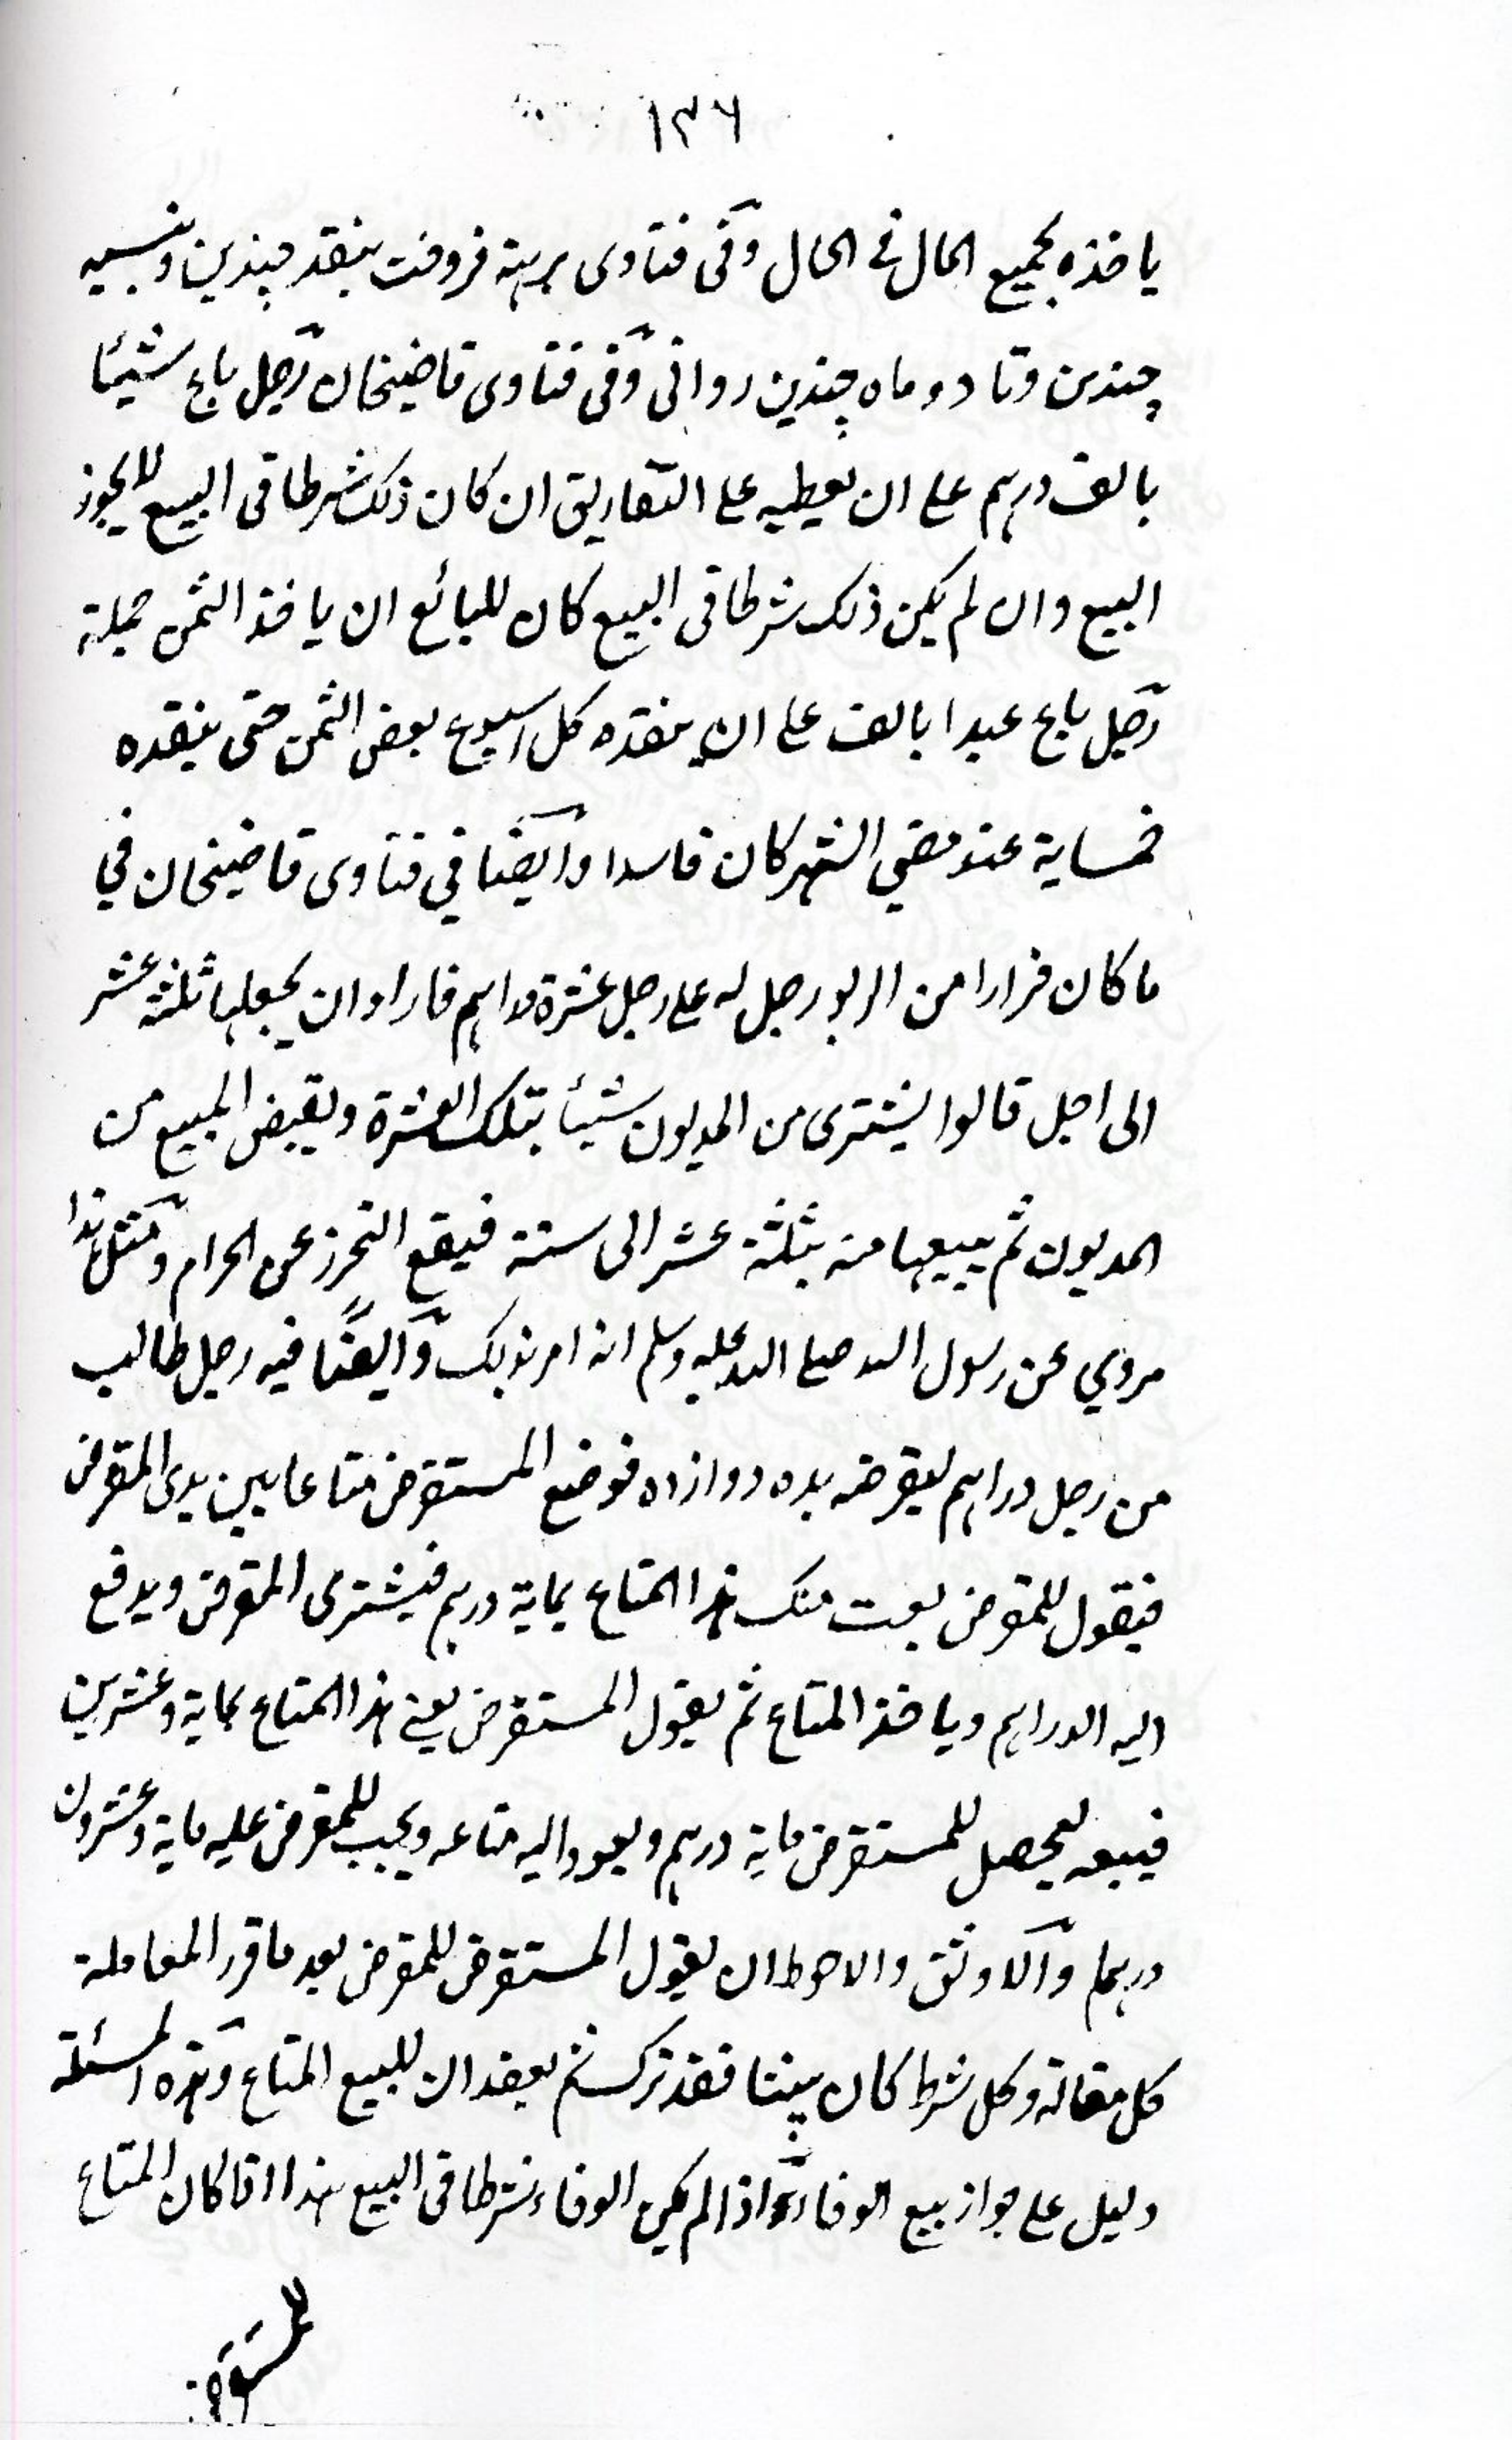 ۱۳۶
ياخذه بجميع المال في الحال وفى فتاوى برهنة فروخت بنقد چندين وبنسيه
چندين وتا دو ماه چندين روانى وفى فتاوى قاضيخان رجل باع شيئا
بالف درهم على ان يعطيه على التفاريق ان كان ذلك شرطا فى البيع لا يجوز
البيع وان لم يكن ذلك شرطا فى البيع كان للبائع ان ياخذ الثمن جملة
رجل باع عبدا بالف على ان ينقده كل اسبوع بعض الثمن حتى ينقده
خمساية عند مضي الشهر كان فاسدا وايضا في فتاوى قاضيخان في
ما كان فرارا من الربو رجل له على رجل عشرة دراهم فاراد ان يجعلها ثلثة عشر
الى اجل قالوا يشترى من المديون شيئا بتلك العشرة ويقبض المبيع من
المديون ثم يبيعها منه بثلثة عشر الى سنة فيقع التحرز عن الحرام ومثل هذا
مروي عن رسول الله صلى الله عليه وسلم انه امر بذلك وايضًا فيه رجل طالب
من رجل دراهم ليقرضه بده دوازده فوضع المستقرض متاعا بين يدى المقرض
فيقول للمقرض بعت منك هذا المتاع بماية درهم فيشترى المقرض ويدفع
اليه الدراهم وياخذ المتاع ثم يقول المستقرض بعنى هذا المتاع بماية وعشرين
فيبيعه ليحصل للمستقرض ماية درهم ويعود اليه متاعه ويجب للمقرض عليه ماية وعشرون
درهما والاوثق والاحوط ان يقول المستقرض للمقرض بعد ما قرر المعاملة
كل مقالة وكل شرط كان بيننا فقد تركت ثم يعقدان للبيع المتاع وهذه المسئلة
دليل على جواز بيع الوفاء اذا لم يكن الوفاء شرطا فى البيع هذا اذا كان المتاع